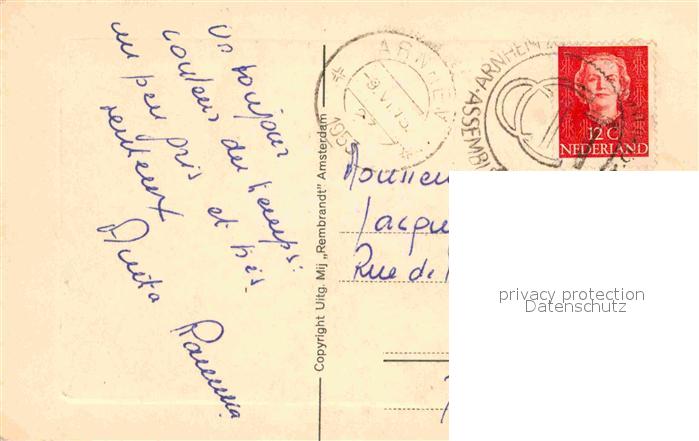 toujours
couleur du temps:
un peu gris et très
venteux
Anita
Copyright Uitg. Mij „Rembrandt" Amsterdam
ARNHEM
1955
ARNHEM
ASSEMBL
12 C
NEDERLAND
Monsieu
Jacqu
Rue de
privacy protection
Datenschutz